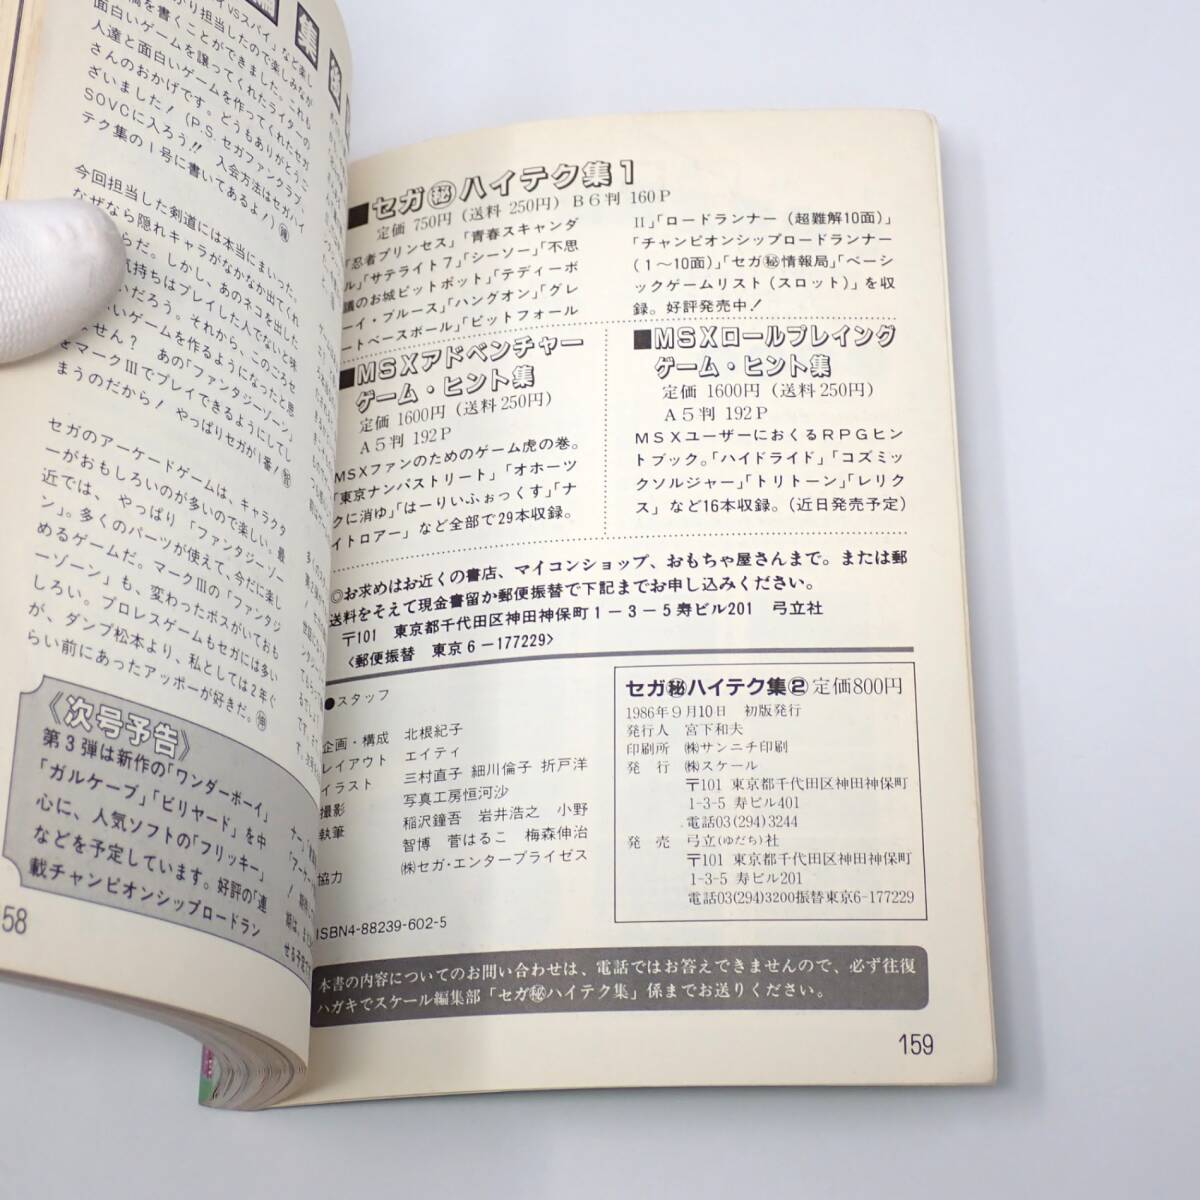 編
集
イVSスパイ」など楽し
かり担当したので楽しみなが
稿を書くことができました。これも
面白いゲームを譲ってくれたライターの
人達と面白いゲームを作ってくれたセガ
さんのおかげです。どうもありがとうご
ざいました！（P.S.セガファンクラブ、
SOVCに入ろう!! 入会方法はセガハイ
テク集の1号に書いてあるよ！）
今回担当した剣道には本当にまいった。
なぜなら隠れキャラがなかなか出てくれ
らだ。しかし、あのネコを出した
気持ちはプレイした人でないと味
いだろう。それから、このごろセ
いいゲームを作るようになったと思
ません？ あの「ファンタジーゾーン」
をマークⅢでプレイできるようにしてし
まうのだから！ やっぱりセガが1番！
セガのアーケードゲームは、キャラクタ
ーがおもしろいのが多いので楽しい。最
近では、やっぱり「ファンタジーゾー
ン」。多くのパーツが使えて、今だに楽し
めるゲームだ。マークⅢの「ファンタジ
ーゾーン」も、変わったボスがいておも
しろい。プロレスゲームもセガには多い
が、ダンプ松本より、私としては2年ぐ
らい前にあったアッポーが好きだ。
《次号予告》
第3弾は新作の「ワンダーボーイ」
「ガルケーブ」「ビリヤード」を中
心に、人気ソフトの「フリッキー」
などを予定しています。好評の「連
載チャンピオンシップロードラン
58
■セガ㊙ハイテク集1
定価 750円（送料 250円）B6判 160P
「忍者プリンセス」「青春スキャンダ
ル」「サテライト7」「シーソー」「不思
議のお城ピットポット」「テディーボ
ーイ・ブルース」「ハングオン」「グレ
ートベースボール」「ピットフォール
II」「ロードランナー（超難解10面）」
「チャンピオンシップロードランナー
（1～10面）」「セガ㊙情報局」「ベーシ
ックゲームリスト（スロット）」を収
録。好評発売中！
■MSXアドベンチャー
ゲーム・ヒント集
定価 1600円（送料250円）
A5判 192P
MSXファンのためのゲーム虎の巻。
「東京ナンパストリート」「オホーツ
クに消ゆ」「はーりいふぉっくす」「ナ
イトロアー」など全部で29本収録。
■MSXロールプレイング
ゲーム・ヒント集
定価 1600円（送料250円）
A5判 192P
MSXユーザーにおくるRPGヒン
トブック。「ハイドライド」「コズミッ
クソルジャー」「トリトーン」「レリク
ス」など16本収録。（近日発売予定）
◎お求めはお近くの書店、マイコンショップ、おもちゃ屋さんまで。または郵
送料をそえて現金書留か郵便振替で下記までお申し込みください。
〒101 東京都千代田区神田神保町1－3－5寿ビル201 弓立社
〈郵便振替 東京6－177229〉
●スタッフ
企画・構成 北根紀子
レイアウト エイティ
イラスト 三村直子 細川倫子 折戸洋
撮影 写真工房恒河沙
執筆 稲沢鐘吾 岩井浩之 小野
智博 菅はるこ 梅森伸治
協力 ㈱セガ・エンタープライゼス
ISBN4-88239-602-5
セガ㊙ハイテク集② 定価800円
1986年9月10日 初版発行
発行人 宮下和夫
印刷所 ㈱サンニチ印刷
発 行 ㈱スケール
〒101 東京都千代田区神田神保町
1-3-5 寿ビル401
電話03(294)3244
発 売 弓立(ゆだち)社
〒101 東京都千代田区神田神保町
1-3-5 寿ビル201
電話03(294)3200振替東京6-177229
本書の内容についてのお問い合わせは、電話ではお答えできませんので、必ず往復
ハガキでスケール編集部「セガ㊙ハイテク集」係までお送りください。
159